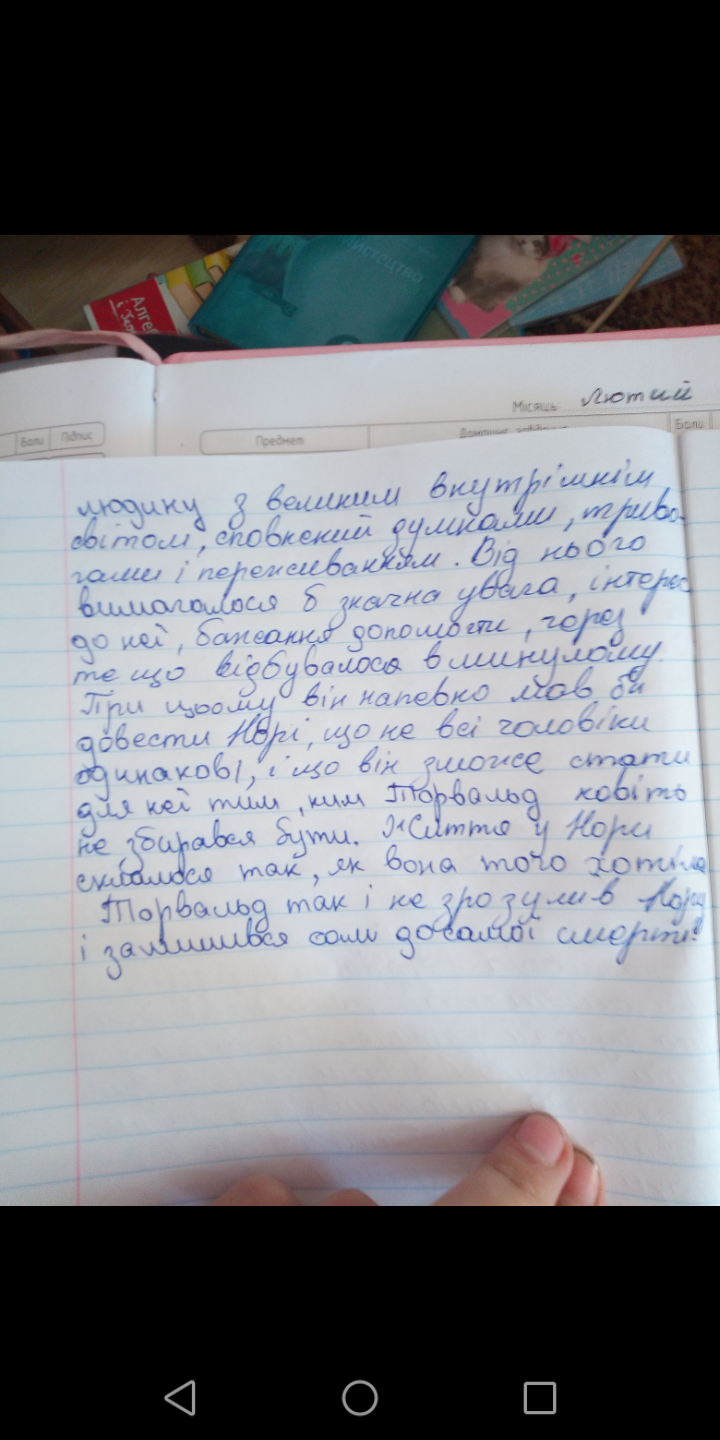 Мистецтво
Алге
і Гео
Місяць Лютий
Бали Підпис
Предмет
Домашнє завдання
Бали
людину з великим внутрішнім
світом, сповнений думками, триво-
гами і переживанням. Від нього
вимагалося б значна увага, інтерес
до неї, бажання допомогти, через
те що відбувалося в минулому.
При цьому він напевно мав би
довести Норі, що не всі чоловіки
одинакові, і що він зможе стати
для неї тим, ким Торвальд навіть
не збирався бути. Життя у Нори
склалося так, як вона того хотіла
Торвальд так і не зрозумів Нору
і залишився сам до самої смерті!